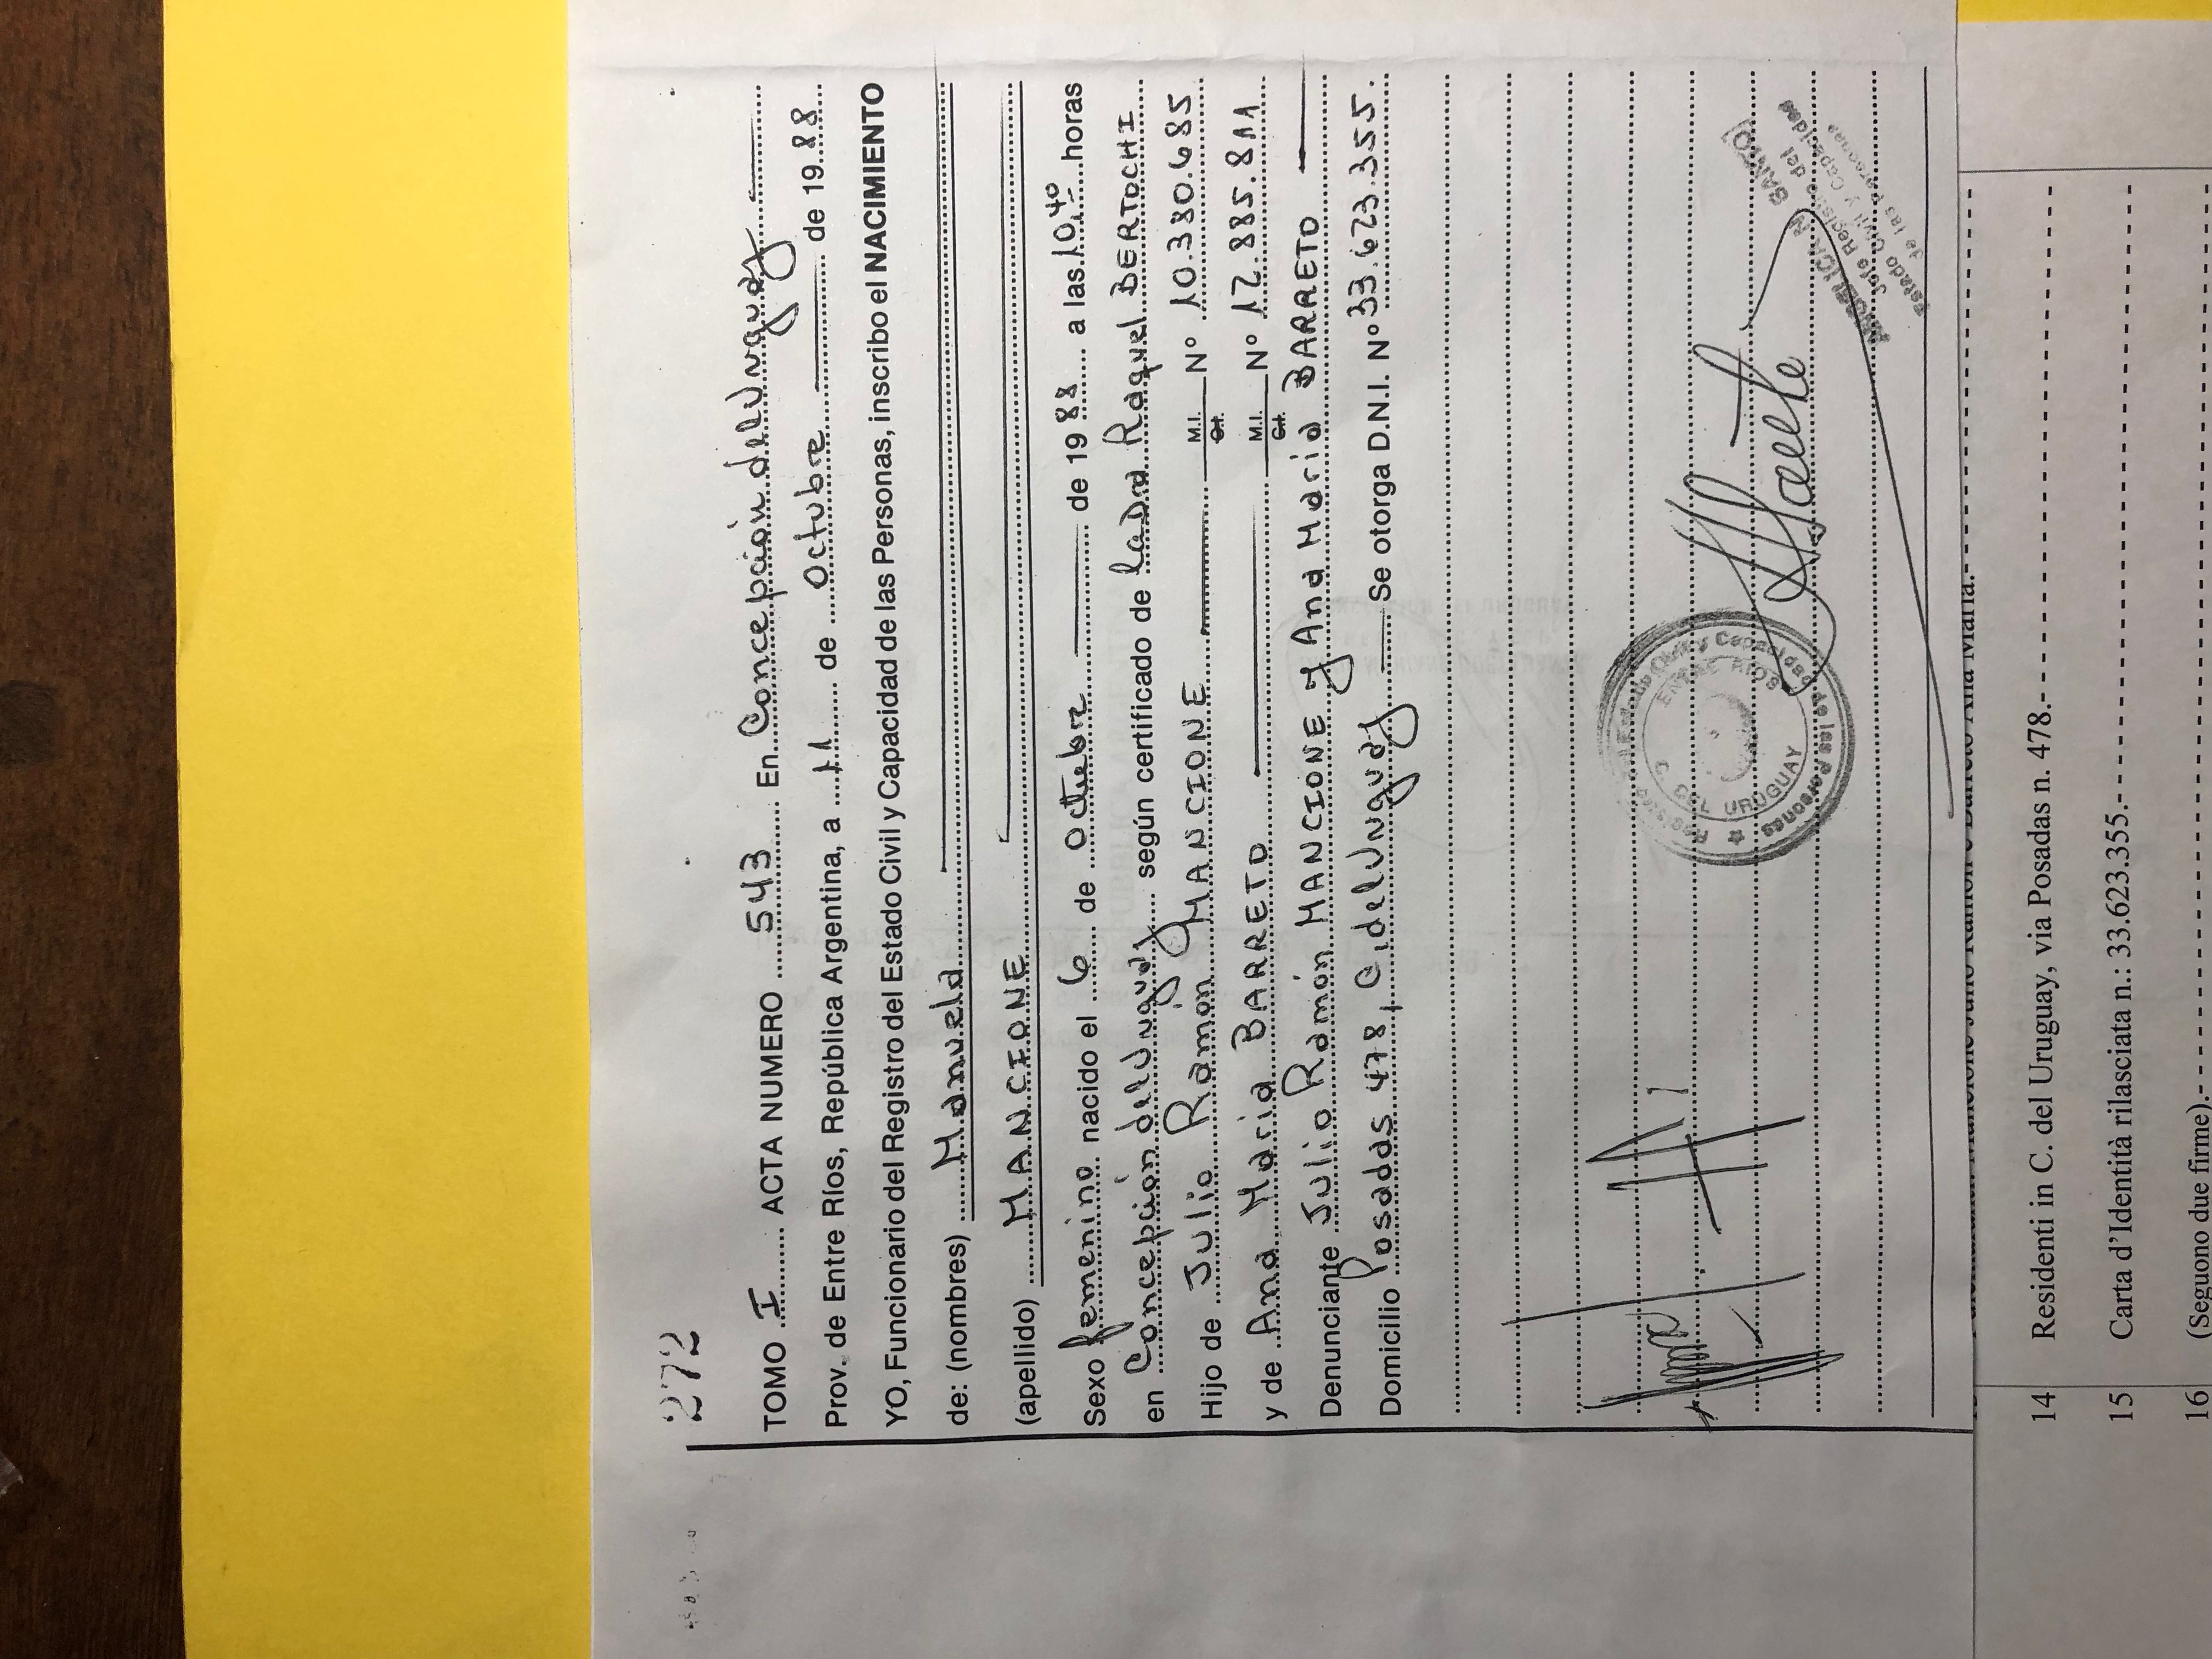 272
TOMO I ACTA NUMERO 543 En Concepción del Uruguay
Prov. de Entre Ríos, República Argentina, a 11 de Octubre de 1988
YO, Funcionario del Registro del Estado Civil y Capacidad de las Personas, inscribo el NACIMIENTO
de: (nombres) Manuela
(apellido) MANCIONE
Sexo femenino nacido el 6 de octubre de 1988 a las 10,40 horas
en Concepción del Uruguay según certificado de la Dra Raquel BERTOCHI
Hijo de Julio Ramón MANCIONE M.I. C.I. Nº 10.380.685
y de Ana Maria BARRETO M.I. C.I. Nº 12.885.811
Denunciante Julio Ramón MANCIONE y Ana Maria BARRETO
Domicilio Posadas 478, C. del Uruguay Se otorga D.N.I. Nº 33.623.355.
Registro del Estado Civil y Capacidad de las Personas
C. DEL URUGUAY ENTRE RIOS
ANGELICA M. SANTO
Jefe Registro del
Estado Civil y Capacidad
de las Personas
Mancione Julio Ramón e Barreto Ana María.-
14 Residenti in C. del Uruguay, via Posadas n. 478.-
15 Carta d’Identità rilasciata n.: 33.623.355.-
16 (Seguono due firme).-